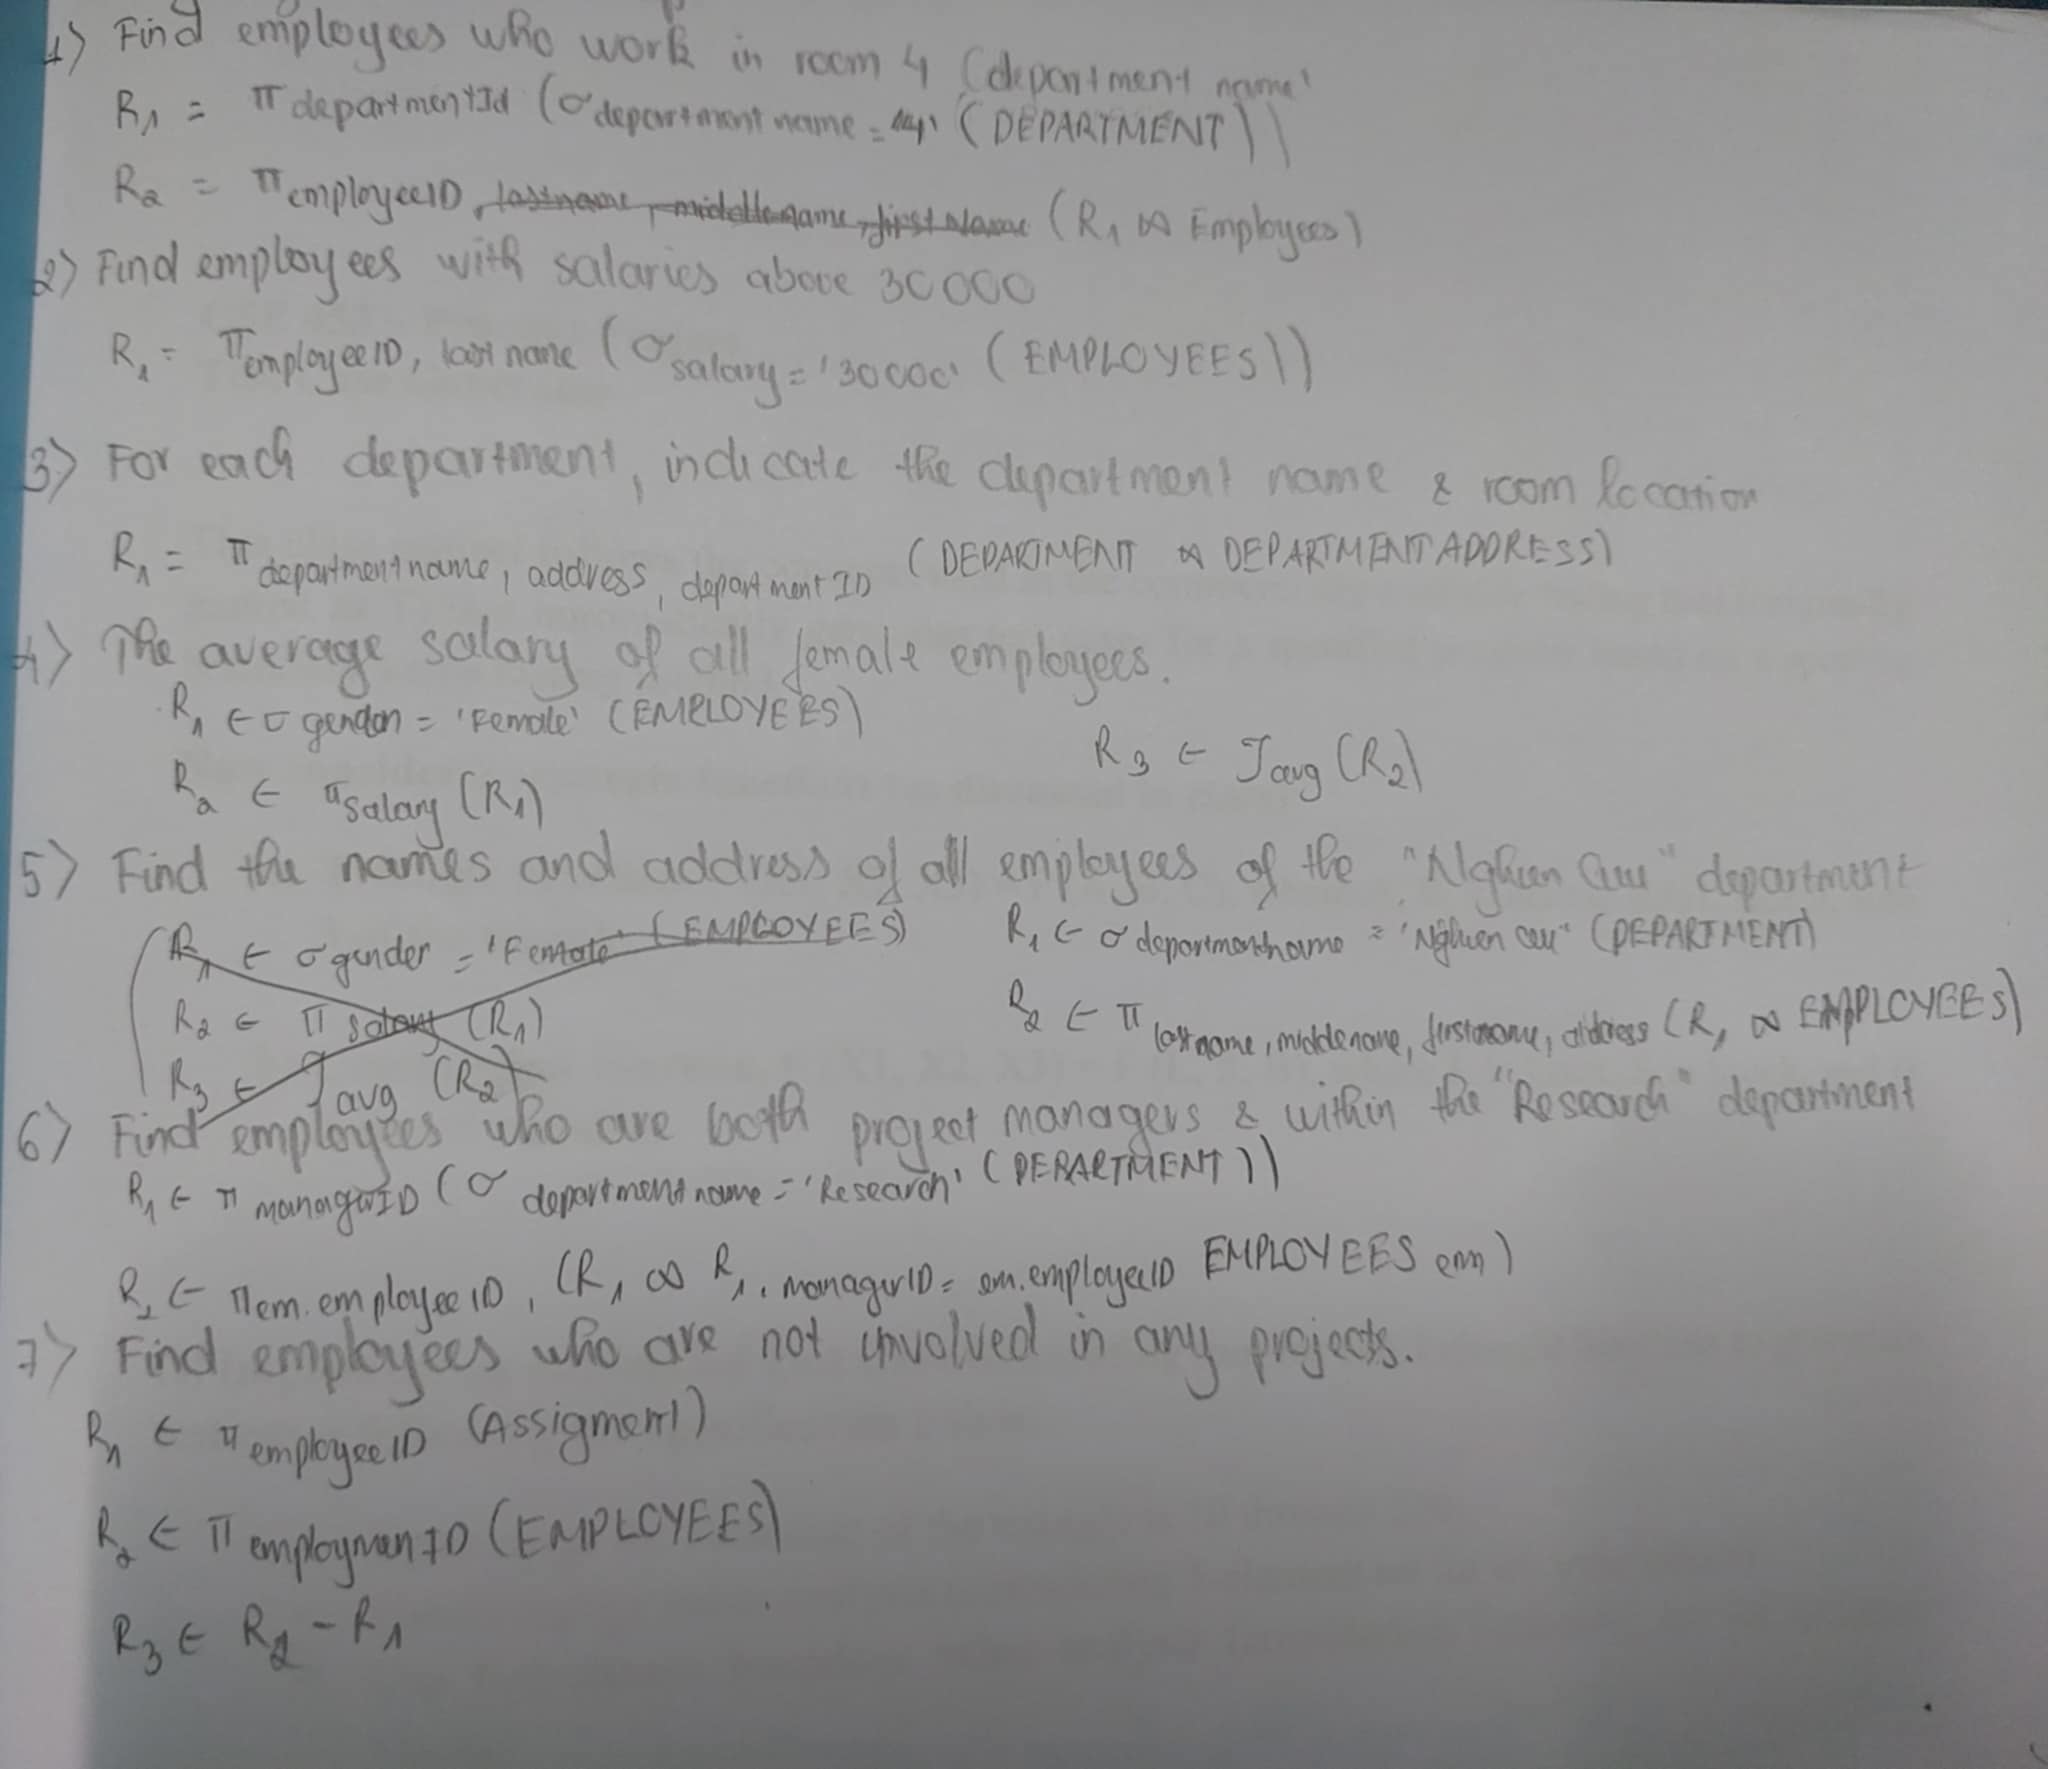 1) Find employees who work in room 4 (department name'
R1 = π departmentId (σ department name = '4' (DEPARTMENT))
R2 = π employeeID, lastname, middlename, firstName (R1 ⋈ Employees)
2) Find employees with salaries above 30000
R1 = π employeeID, last name (σ salary = '30000' (EMPLOYEES))
3) For each department, indicate the department name & room location
R1 = π departmentname, address, department ID (DEPARTMENT ⋈ DEPARTMENTADDRESS)
4) The average salary of all female employees.
R1 ← σ gender = 'Female' (EMPLOYEES)
R2 ← π salary (R1)
R3 ← ℑ avg (R2)
5) Find the names and address of all employees of the "Nghien Cuu" department
R1 ← σ gender = 'Female' (EMPLOYEES)
R2 ← π salary (R1)
R3 ← ℑ avg (R2)
R1 ← σ departmentname = 'Nghien cuu" (DEPARTMENT)
R2 ← π lastname, middlename, firstname, address (R1 ⋈ EMPLOYEES)
6) Find employees who are both project managers & within the "Research" department
R1 ← π managerID (σ departmentname = 'Research' (DEPARTMENT))
R2 ← π em.employeeID, (R1 ⋈ R1.managerID = em.employeeID EMPLOYEES em)
7) Find employees who are not involved in any projects.
R1 ← π employeeID (Assigment)
R2 ← π employmentID (EMPLOYEES)
R3 ← R2 - R1